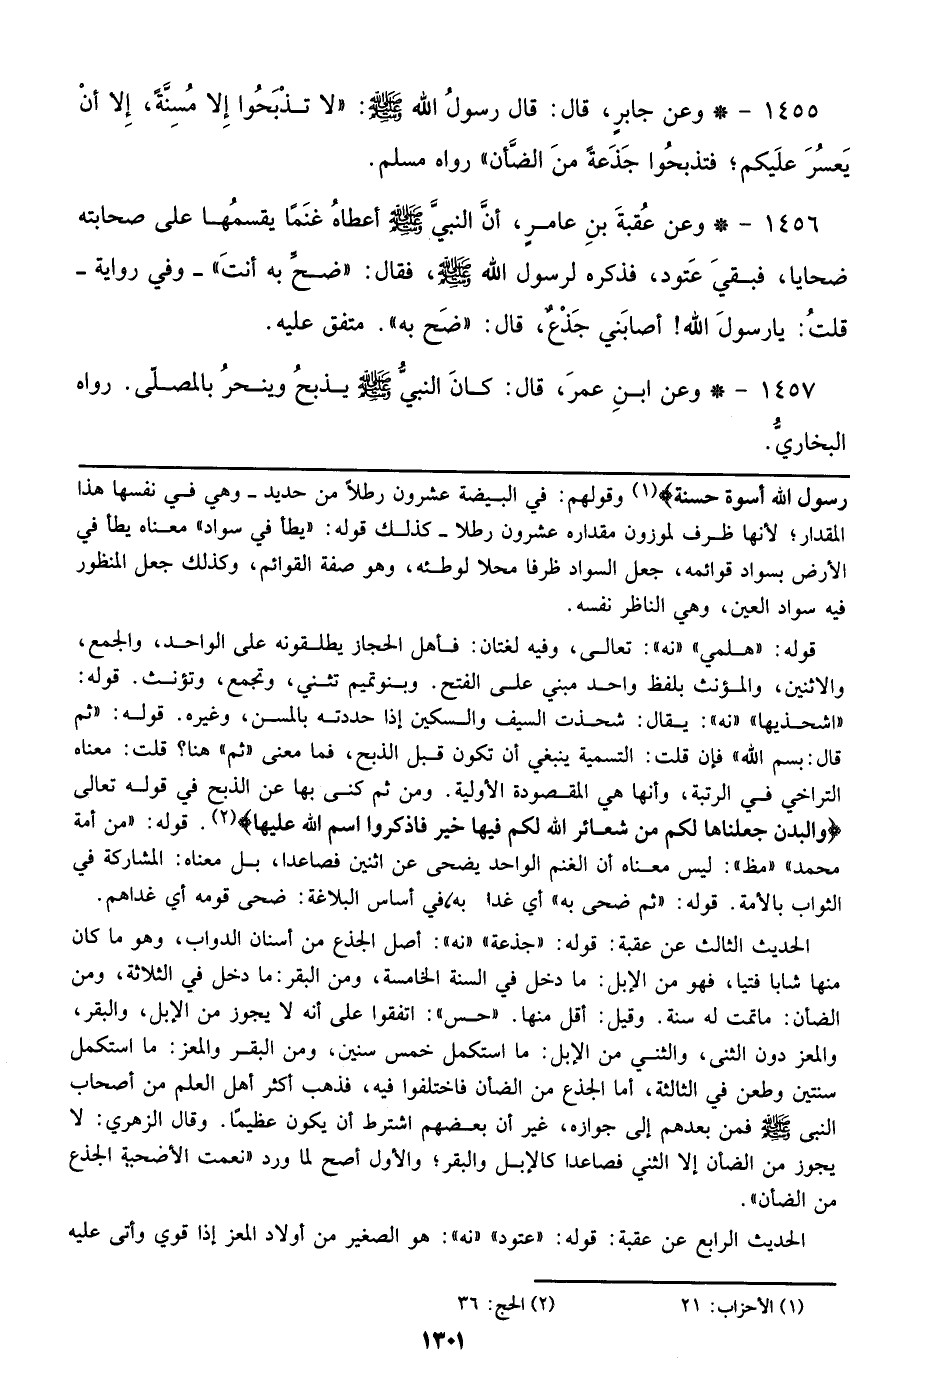 ١٤٥٥ - * وعن جابرٍ، قال: قال رسولُ الله ﷺ: «لا تـذْبَحُوا إِلا مُسِنَّةً، إِلا أنْ
يَعسُرَ علَيكم؛ فتذبحُوا جَذَعةً منَ الضَّأن» رواه مسلم.
١٤٥٦ - * وعن عُقبةَ بنِ عامـرٍ، أنَّ النبيَّ ﷺ أعطاهُ غنَمًا يقسمُهـا على صحابته
ضحايا، فبـقيَ عَتود، فذكره لرسول الله ﷺ، فقال: «ضـحِّ به أنتَ» ـ وفي رواية ـ
قلتُ: يارسولَ الله! أصابَني جَذْعٌ، قال: «ضَح به». متفق عليه.
١٤٥٧ - * وعن ابـنِ عمرَ، قال: كـانَ النبيُّ ﷺ يـذبحُ وينـحرُ بالمصـلّى. رواه
البخاريُّ.
رسول الله أسوة حسنة﴾(١) وقولهم: في البـيضة عشرون رطلاً من حديد ـ وهي فـي نفسها هذا
المقدار؛ لأنها ظـرف لموزون مقداره عشرون رطلا ـ كذلـك قوله: «يطأ في سواد» معـناه يطأ في
الأرض بسواد قوائمه، جعل السواد ظرفا محلا لوطـئه، وهو صفة القوائم، وكذلك جعل المنظور
فيه سواد العين، وهي الناظر نفسه.
قوله: «هـلمي» «نه»: تعالـى، وفيه لغتان: فـأهل الحجاز يطلـقونه على الواحـد، والجمع،
والاثنين، والمـؤنث بلفظ واحـد مبني علـى الفتح. وبـنوتميم تثـني، وتجمع، وتؤنـث. قوله:
«اشحـذيها» «نه»: يـقال: شحـذت السيف والـسكين إذا حددتـه بالمسـن، وغيره. قولـه: «ثم
قال: بسم الله» فإن قلت: التسمية ينبغي أن تكون قـبل الذبح، فما معنى «ثم» هنا؟ قلت: معناه
التراخي فـي الرتبة، وأنها هي المقـصودة الأولية. ومن ثم كنـى بها عن الذبح في قولـه تعالى
﴿والبدن جعلناها لكم من شعـائر الله لكم فيها خير فاذكروا اسم الله عليها﴾(٢). قوله: «من أمة
محمد» «مظ»: ليس معـناه أن الغنم الواحد يضحى عن اثنين فصاعدا، بـل معناه: المشاركة في
الثواب بالأمة. قوله: «ثم ضحى به» أي غدا به/في أساس البلاغة: ضحى قومه أي غداهم.
الحديث الثالث عن عقبة: قوله: «جذعة» «نه»: أصل الجذع من أسنان الدواب، وهو ما كان
منها شابا فتيا، فهو من الإبل: ما دخل في السنة الخامسة، ومن البقر: ما دخل في الثلاثة، ومن
الضأن: ماتمت له سنة. وقيل: أقل منها. «حـس»: اتفقوا على أنه لا يجوز من الإبل، والبقر،
والمعز دون الثنى، والثنـي من الإبل: ما استكمل خمس سنين، ومن البقـر والمعز: ما استكمل
سنتين وطعن في الثالثة، أما الجذع من الضأن فاختلفوا فيه، فذهب أكثر أهل العلم من أصحاب
النبى ﷺ فمن بعدهم إلى جوازه، غير أن بعـضهم اشترط أن يكون عظيمًا. وقال الزهري: لا
يجوز من الضأن إلا الثني فصاعدا كالإبـل والبقر؛ والأول أصح لما ورد «نعمت الأضحية الجذع
من الضأن».
الحديث الرابع عن عقبة: قوله: «عتود» «نه»: هو الصغير من أولاد المعز إذا قوي وأتى عليه
(١) الأحزاب: ٢١ (٢) الحج: ٣٦
١٣٠١